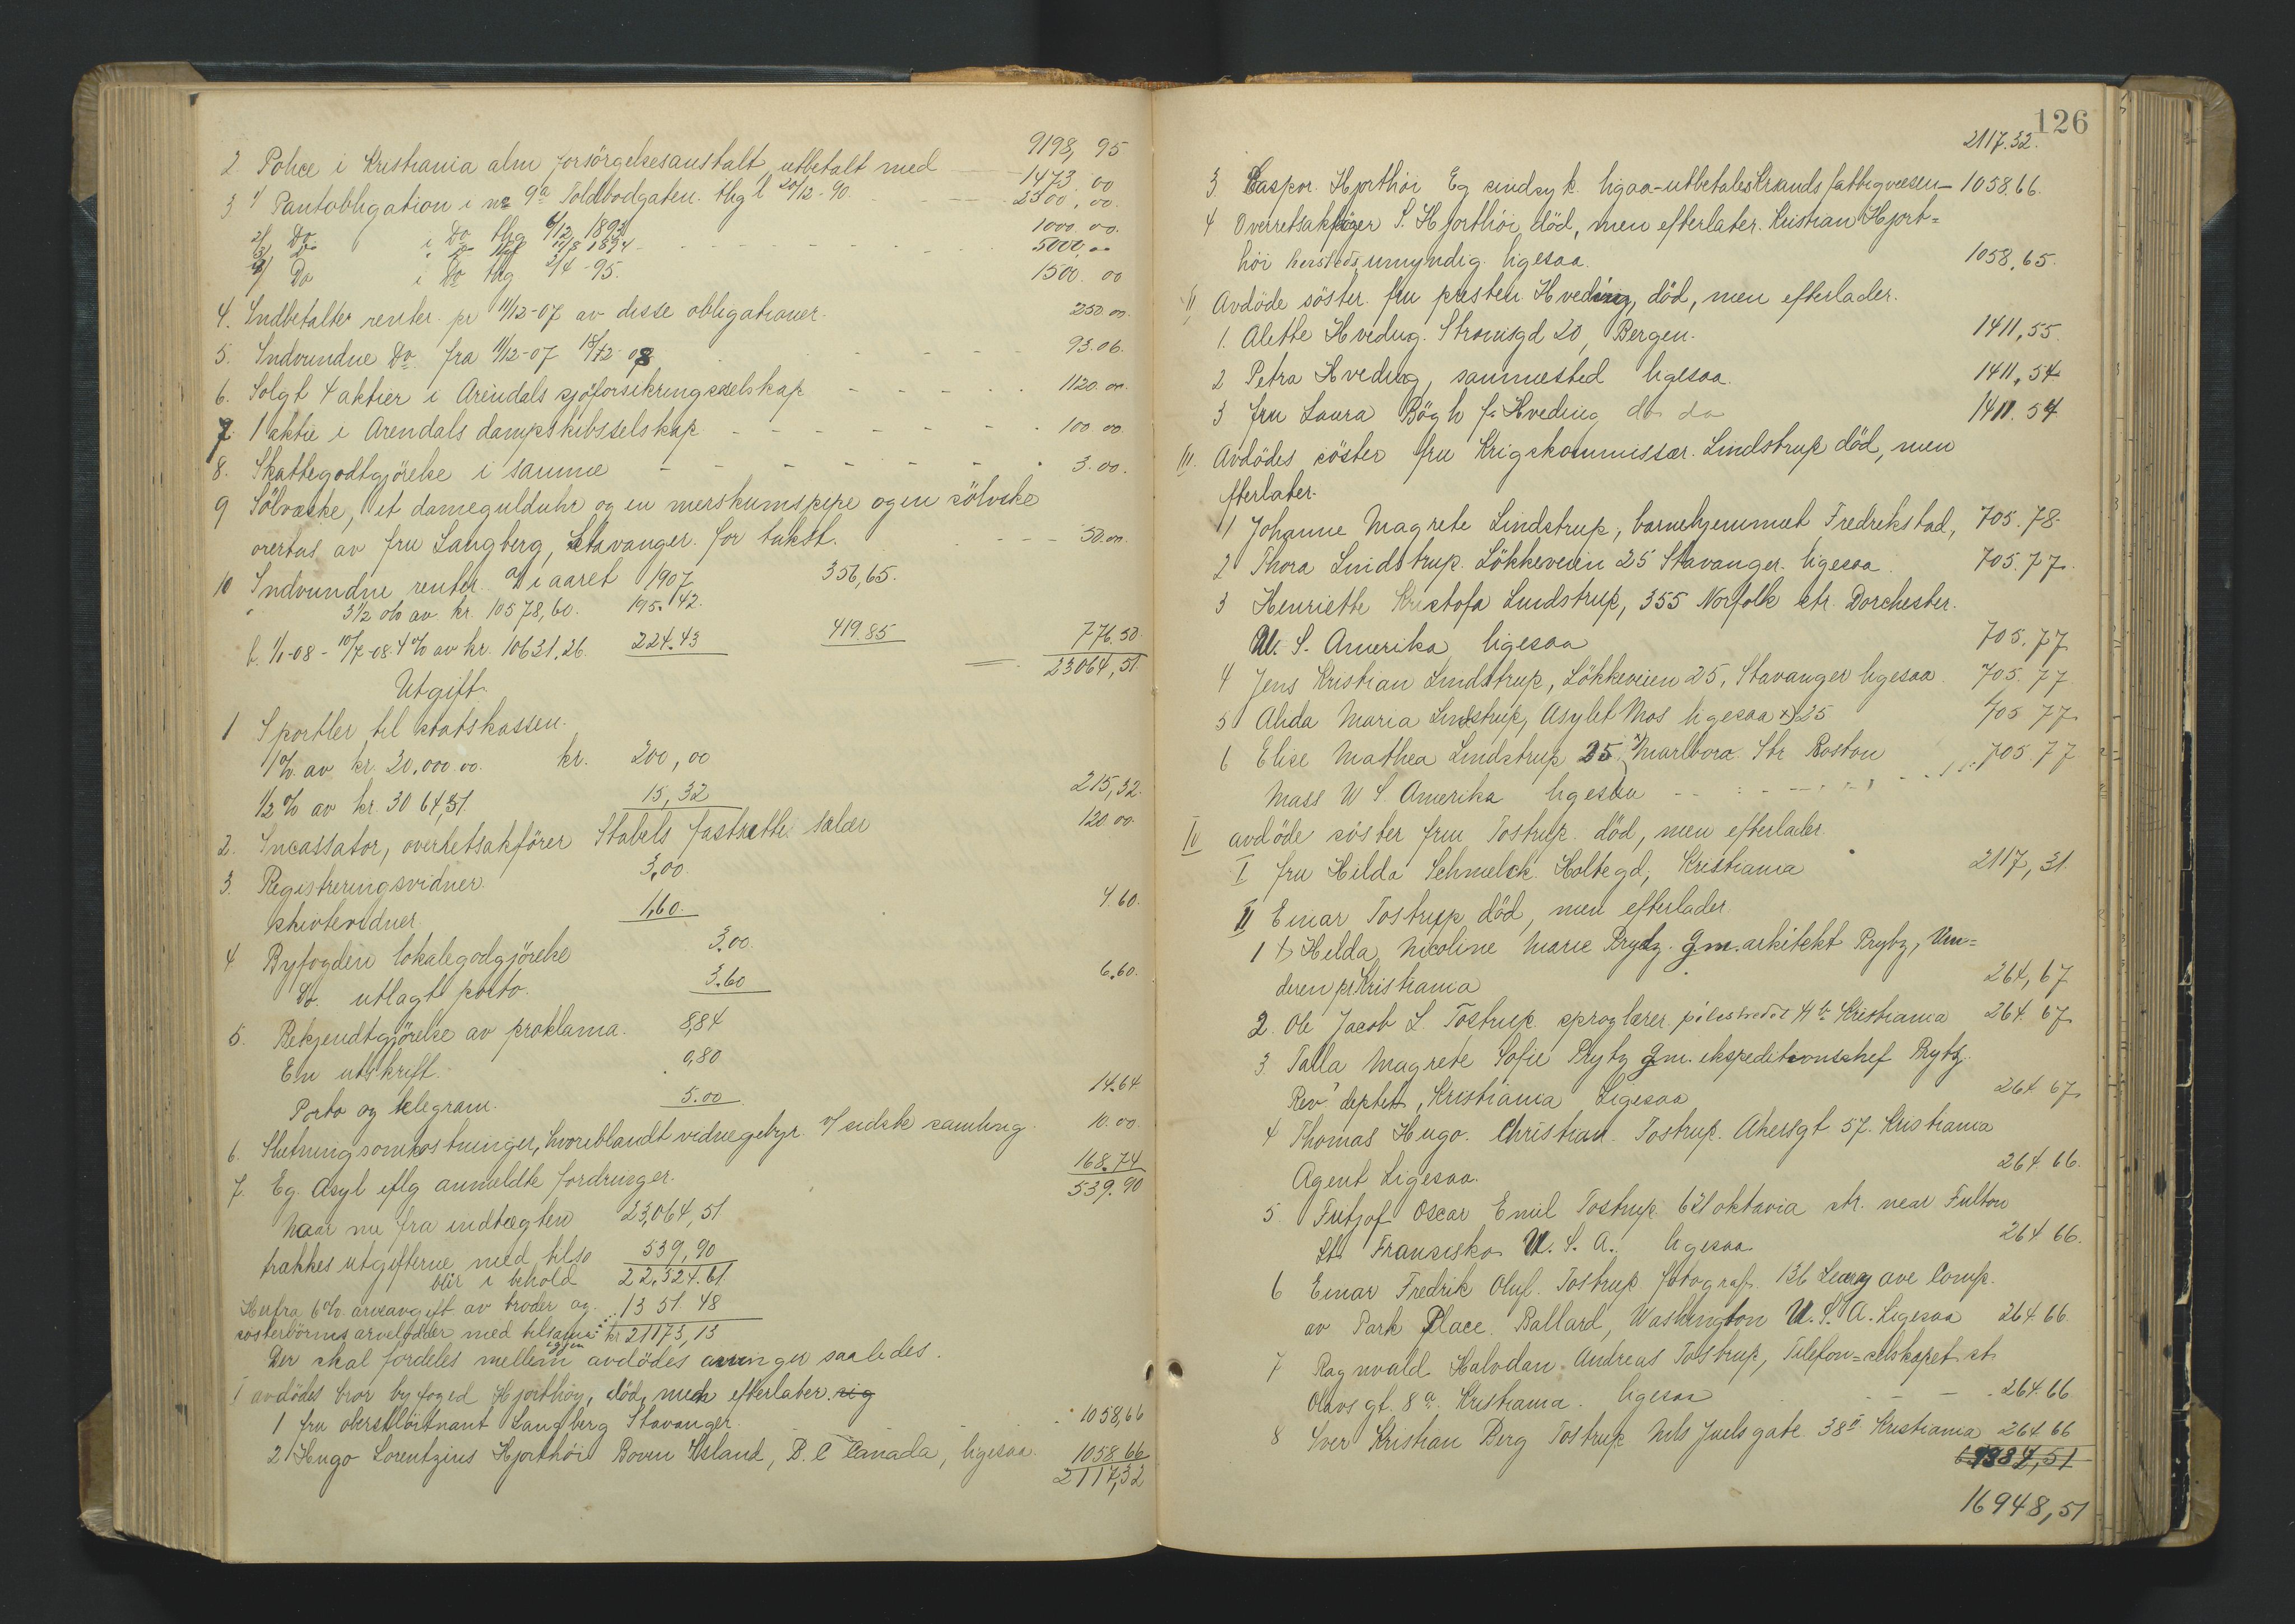 9198, 95
2 Police i Kristiania alm forsörgelsesanstalt, utbetalt med 1473.00
3 1/ Pantobligation i no 9a Toldbodgaten. thgl 20/12-90 2500,00.
2/ Do i Do thg 6/12 1892 1000.00.
3/ Do i Do thgl 10/8 1894 5000,00
4/ Do i Do thg 2/4-95. 1500.00
4. Indbetalte renter pr 11/12-07 av disse obligationer. 250.00.
5. Indvundne Do fra 11/12-07 18/12-08 93.06.
6. Solgt 4 aktier i Arendals sjöforsikringsselskap 1120.00.
7. 1 aktie i Arendals dampskibsselskap 100.00.
8. Skattegodtgjörelse i samme 3.00.
9 Sölvæske, et damegulduhr og en merskumspipe og en sölvske
overtas av fru Langberg, Stavanger. for takst. 50.00.
10 Indvundne renter. a/ i aaret 1907 356,65.
3 1/2 o/o av kr. 10578,60. 195.42.
b. 1/1-08 - 10/7-08. 4 o/o av kr. 10631.26. 224.43 419.85 776.50
23064,51
Utgift.
1 Sportler til statskassen.
1 o/o av kr. 20.000.00. kr. 200,00
1/2 o/o av kr. 3064,51. 15,32 215,32.
2. Incassator, overretsakförer Stabels fastsatte salær 120.00.
3. Registreringsvidner. 3,00.
skiftevidner 1,60. 4.60.
4 Byfogden lokalegodgjörelse 3.00.
Do. utlagt porto. 3.60 6.60.
5. Bekjendtgjörelse av proklama. 8,84
En utskrift. 0,80
Porto og telegram. 5.00 14.64
6. Slutningsomkostninger, hvoriblandt vidnegebyr v/ sidste samling. 10.00
7. Eg. Asyl eflg anmeldte fordringer. 168.74
539.90
Naar nu fra indtægten 23,064,51
trækkes utgifterne med tils. 539,90
blir i behold 22,524.61
Herfra 6 o/o arveavgift av broder og 1351.48
sösterbörns arvelodder med tilsamm. kr 21173,13
Der skal fordeles mellem avdödes arvinger saaledes.
I avdödes bror byfoged Hjorthöy, död, men efterlater sig
1 fru oberstlöitnant Langberg Stavanger. 1058,66
2 Hugo Lorentzius Hjorthöi Bowen Island, B. C Canada, ligesaa. 1058 66
2117,32
126
2117.32.
3 Caspar Hjorthöi Eg sindsyk. ligaa-utbetales Krsands fattigvæsen 1058.66.
4 Overretsakförer S. Hjorthöi, död, men efterlater. Kristian Hjort=
höi umyndig. ligesaa. 1058.65.
II Avdöde söster fru presten Hveding, död, men efterlader.
1. Alette Hveding. Strømsgd 20, Bergen. 1411,55.
2 Petra Hveding, sammested ligesaa. 1411,54
3 fru Laura Bögh f. Hveding do do 1411.54
III. Avdödes söster fru Krigskommissær Lindstrup död, men
efterlater.
1 Johanne Magrete Lindstrup, barnehjemmet Fredrikstad, 705.78.
2 Thora Lindstrup. Lökkeveien 25 Stavanger. ligesaa. 705.77.
3 Henriette Kristofa Lindstrup, 355 Norfolk str. Dorchester.
U. S. Amerika ligesaa 705.77
4 Jens Kristian Lindstrup, Lökkeveien 25, Stavanger ligesaa 705.77
5 Alida Maria Lindstrup, Asylet Mos ligesaa x) 25 705 77
6 Elise Mathea Lindstrup 25 x) Marlbora Str Boston 705.77
Mass U S. Amerika ligesaa
IV avdöde söster fru Tostrup död, men efterlader.
I fru Hilda Schmelck Holtegd, Kristiania 2117,31.
II Einar Tostrup död, men efterlader.
1 Hilda Nicoline Marie Prytz. Gm. arkitekt Prytz, Vin=
deren pr Kristiania 264,67
2. Ole Jacob L. Tostrup. sproglærer. pilestrædet 41 b Kristiania 264.67
3 Talla Magrete Sofie Prytz Gm. ekspeditionschef Prytz
Rev. deptet, Kristiania Ligesaa 264.67
4 Thomas Hugo. Christian. Tostrup. Akersgt 57. Kristiania
Agent Ligesaa. 264.66.
5 Fritjof Oscar Emil Tostrup 621 oktavia str. near Fulton
St Fransisko U. S. A. ligesaa 264 66.
6 Einar Fredrik Oluf. Tostrup fotograf. 136 Leary ave Comp.
av Park Place. Ballard, Washington U. S. A. Ligesaa 264 66.
7 Ragnvald Halvdan Andreas Tostrup, Telefon=selskapet st
Olavs gt. 8a. Kristiania. ligesaa 264.66.
8 Iver Kristian Berg Tostrup Nils Juels gate 38 II Kristiania 264 66
16948,51